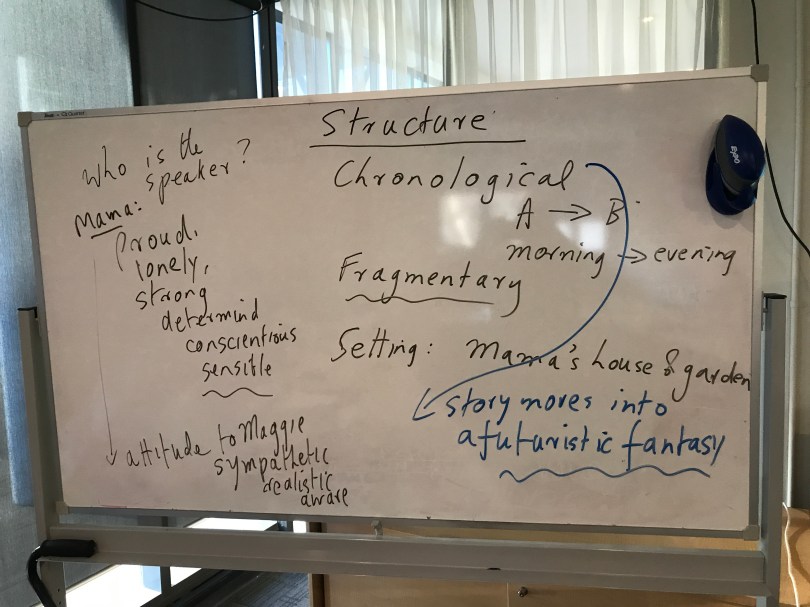 Who is the
speaker?
Mama:
Proud,
lonely,
strong
determind
conscientious
sensible
attitude to Maggie
sympathetic
realistic
aware
Structure
Chronological
A → B
morning → evening
Fragmentary
Setting: Mama's house & garden
story moves into
a futuristic fantasy